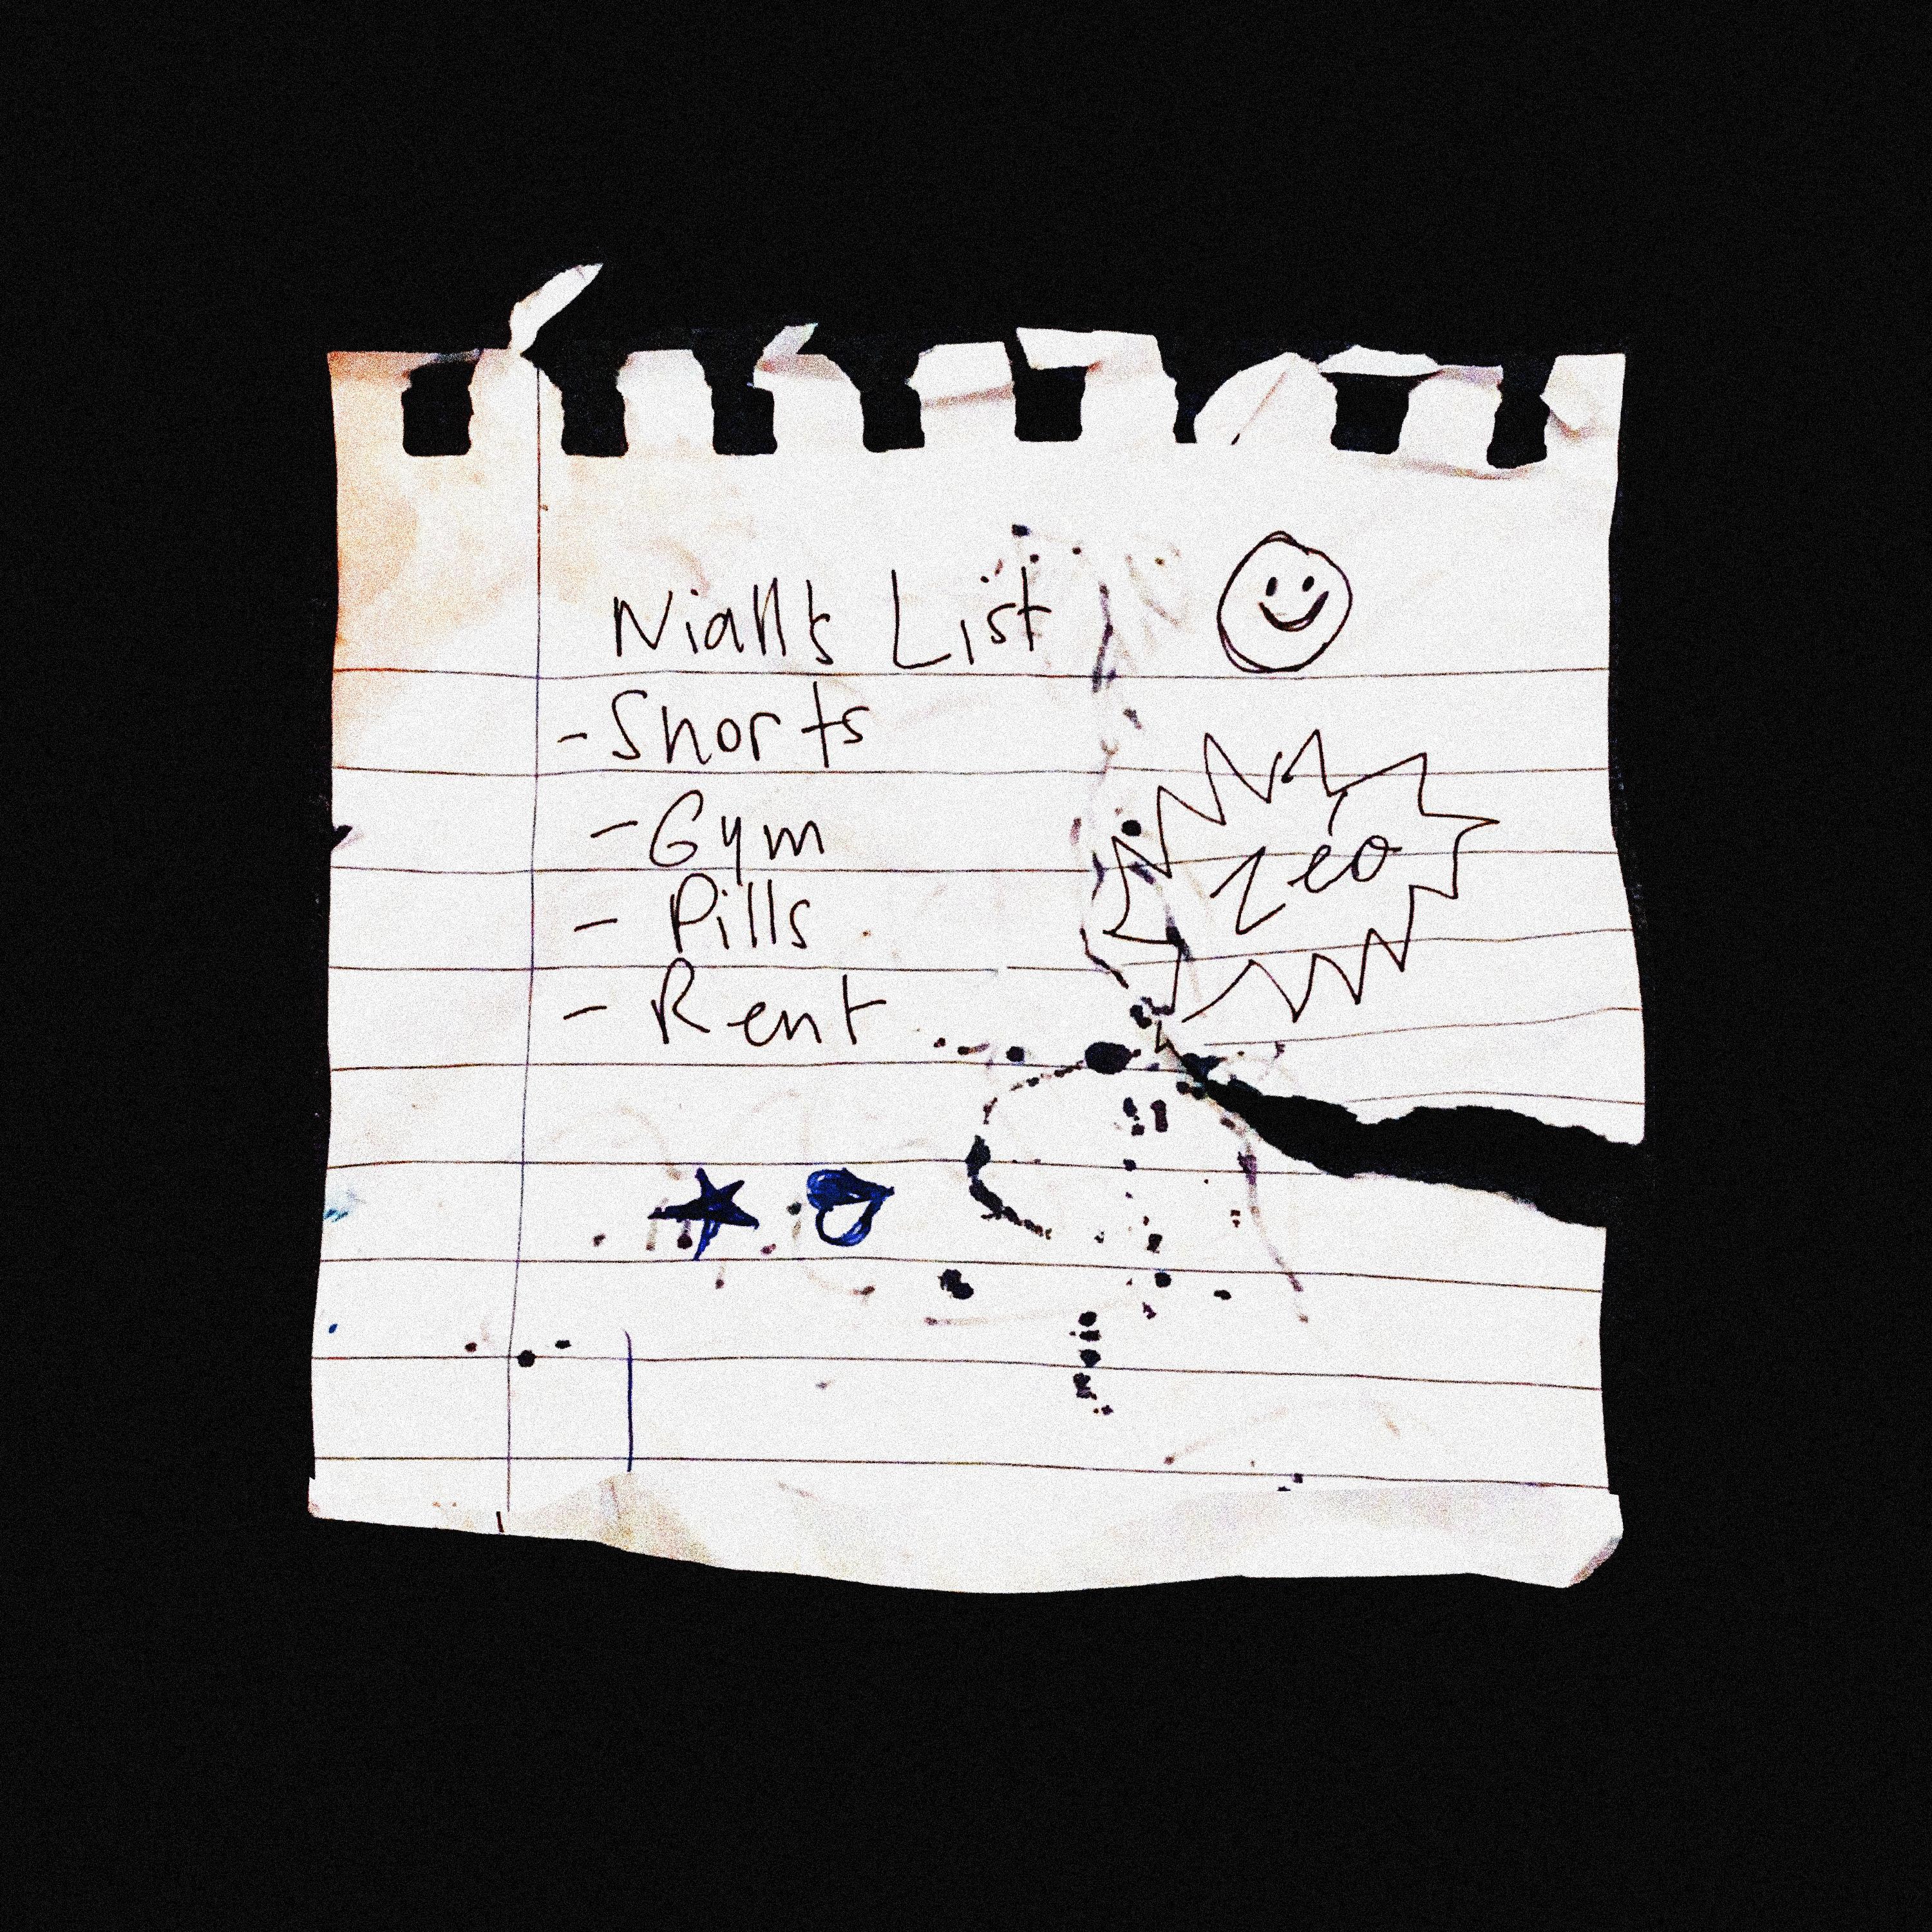 Niall's List
- Shorts
- Gym
- Pills
- Rent
Zeo